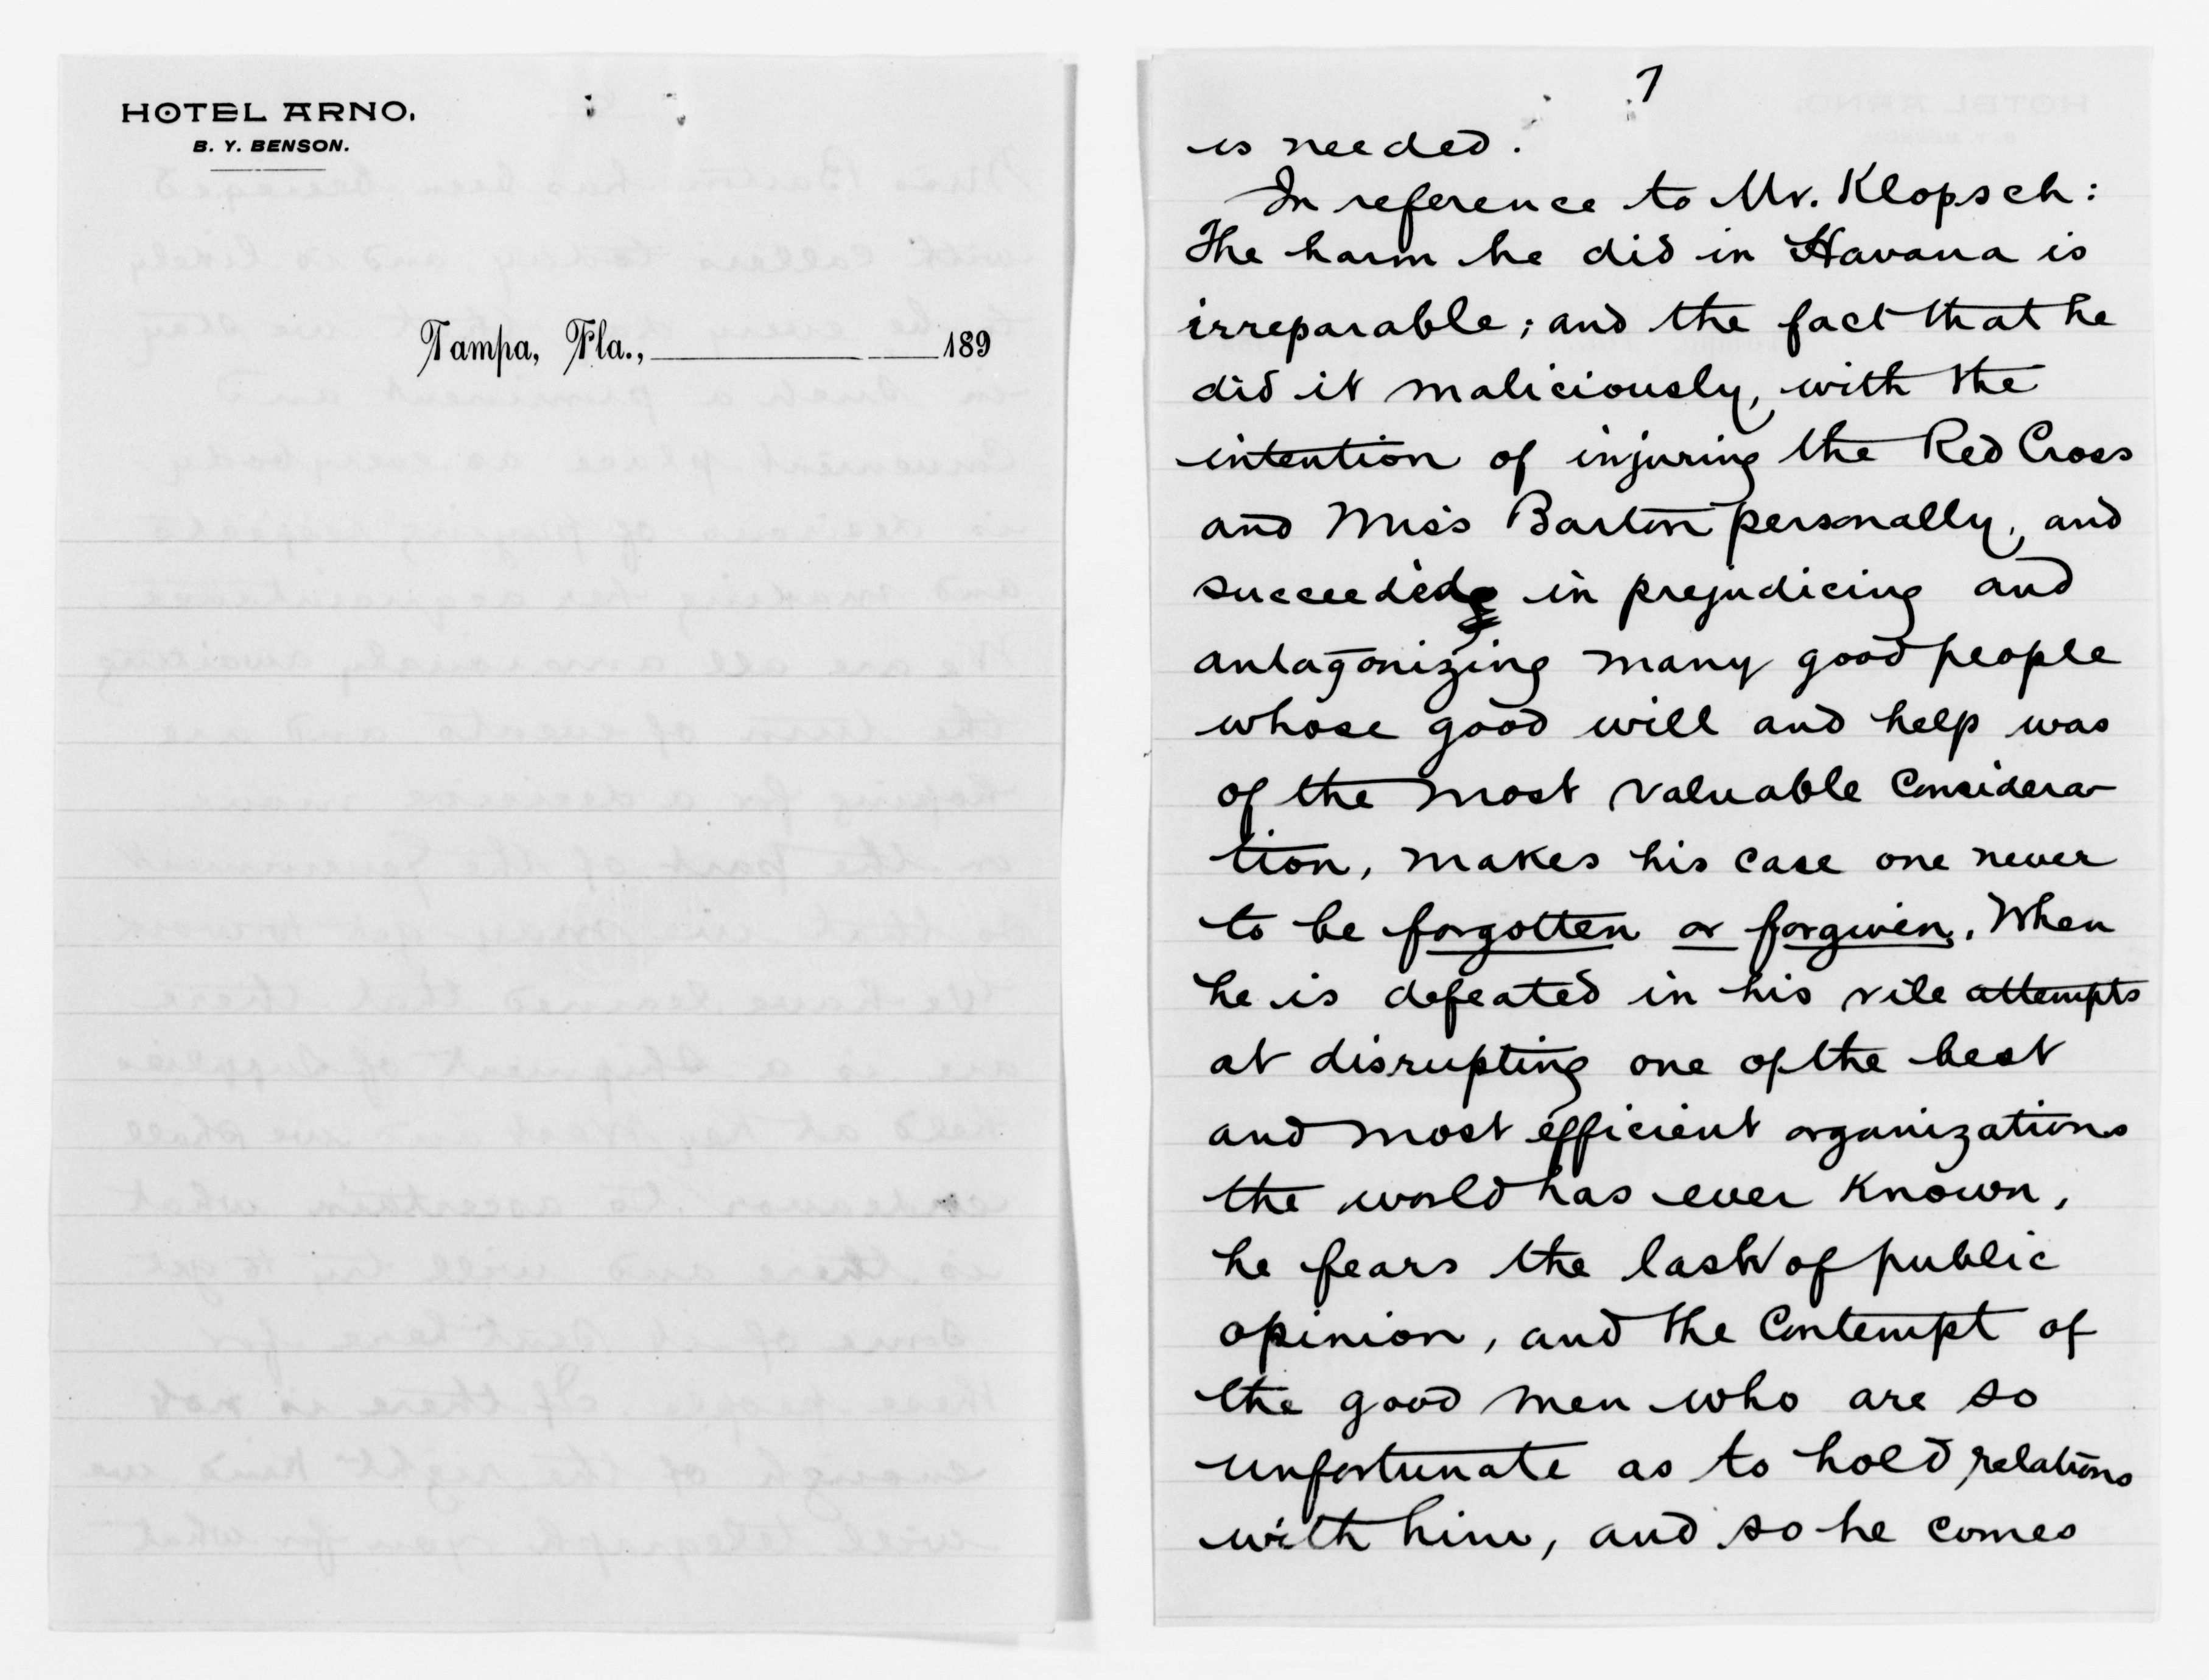 HOTEL ARNO.
B. Y. BENSON.
Tampa, Fla., 189
7
is needed.
In reference to Mr. Klopsch:
The harm he did in Havana is
irreparable; and the fact that he
did it maliciously, with the
intention of injuring the Red Cross
and Miss Barton personally, and
succeeded in prejudicing and
antagonizing many good people
whose good will and help was
of the most valuable considera-
tion, makes his case one never
to be forgotten or forgiven. When
he is defeated in his vile attempts
at disrupting one of the best
and most efficient organizations
the world has ever known,
he fears the lash of public
opinion, and the contempt of
the good men who are so
unfortunate as to hold relations
with him, and so he comes